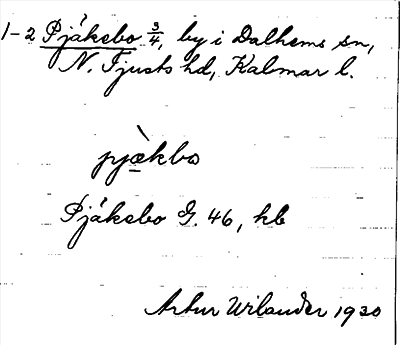 1-2 Pjäksbo 3/4, by i Dalhems sn,
N. Tjusts hd, Kalmar l.
pjæ̀kbo
Pjäksbo G. 46, kb
Artur Wilander 1930